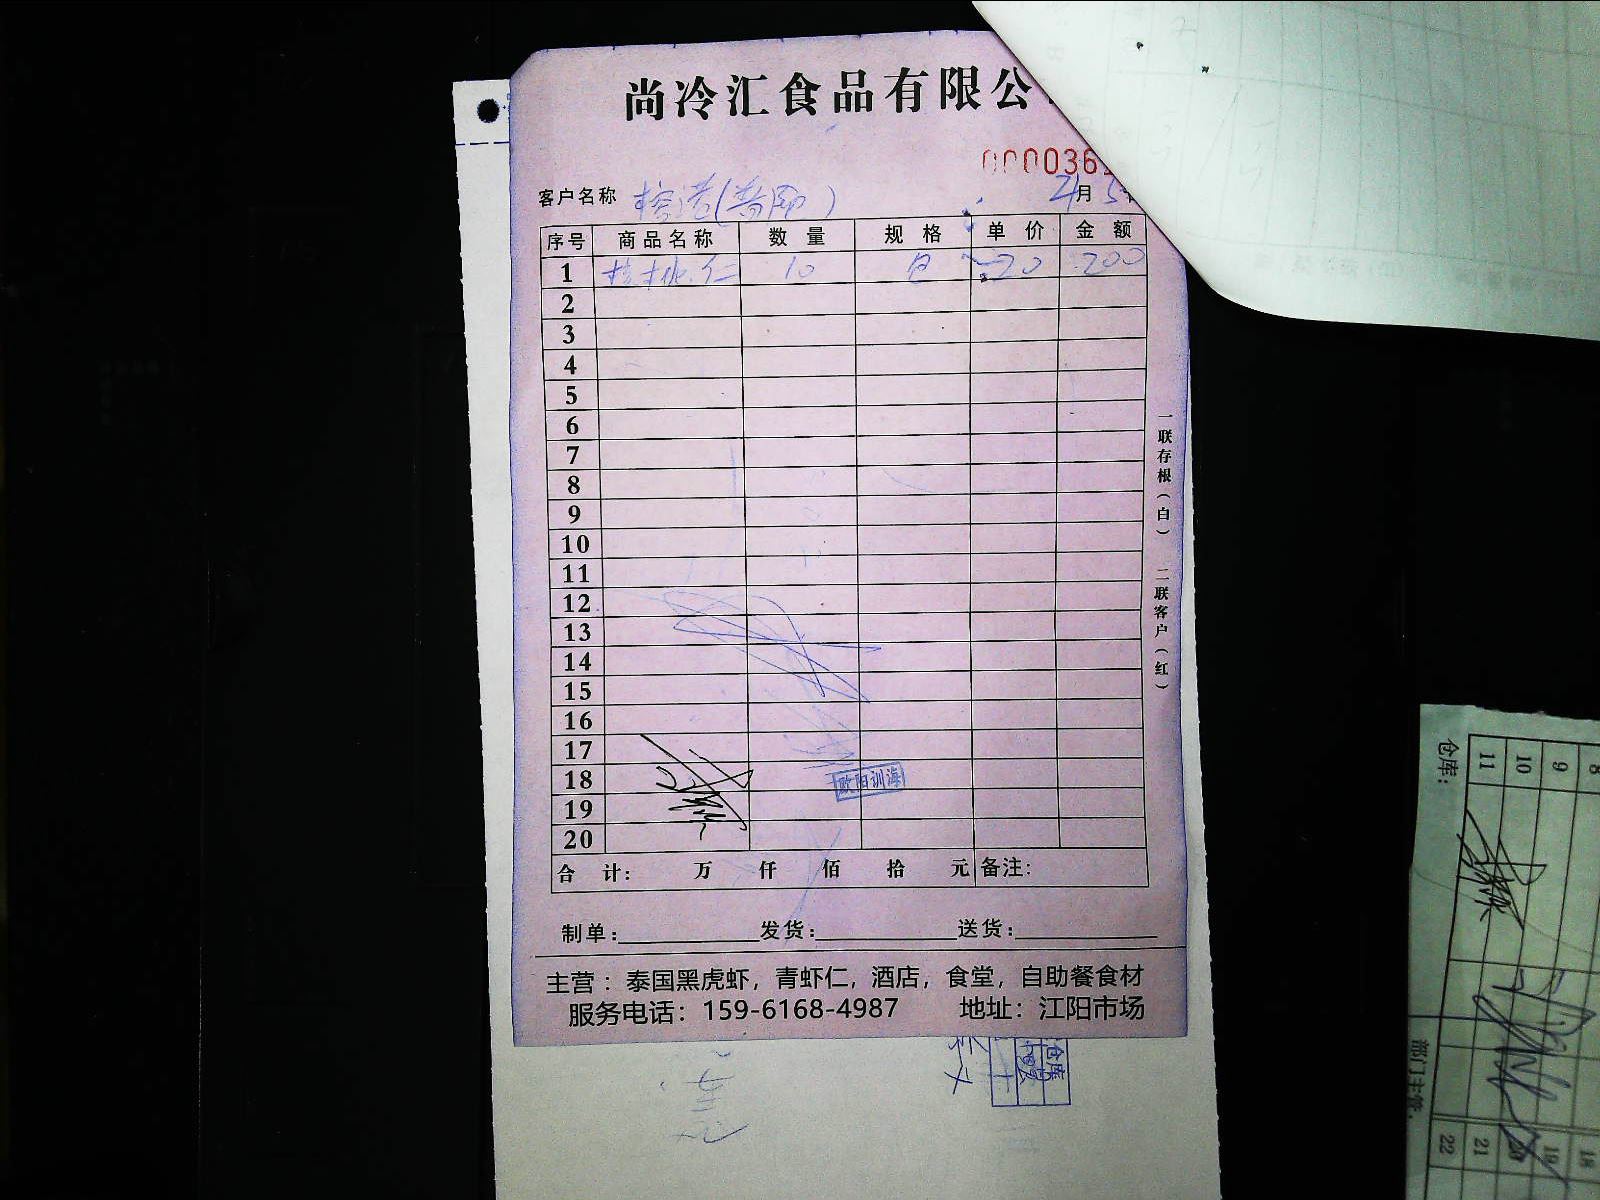 尚冷汇食品有限公
000036
客户名称 月 5
序号 商品名称 数量 规格 单价 金额
1 核桃仁 10 包 20 200
2
3
4
5
6
7
8
9
10
11
12
13
14
15
16
17
18
19
20
欧阳训海
合计： 万 仟 佰 拾 元 备注：
制单： 发货： 送货：
主营：泰国黑虎虾，青虾仁，酒店，食堂，自助餐食材
服务电话：159-6168-4987 地址：江阳市场
一联存根（白） 二联客户（红）
仓库
仓库：
11 10 9 8
部门主管：
22 21 20 19 18